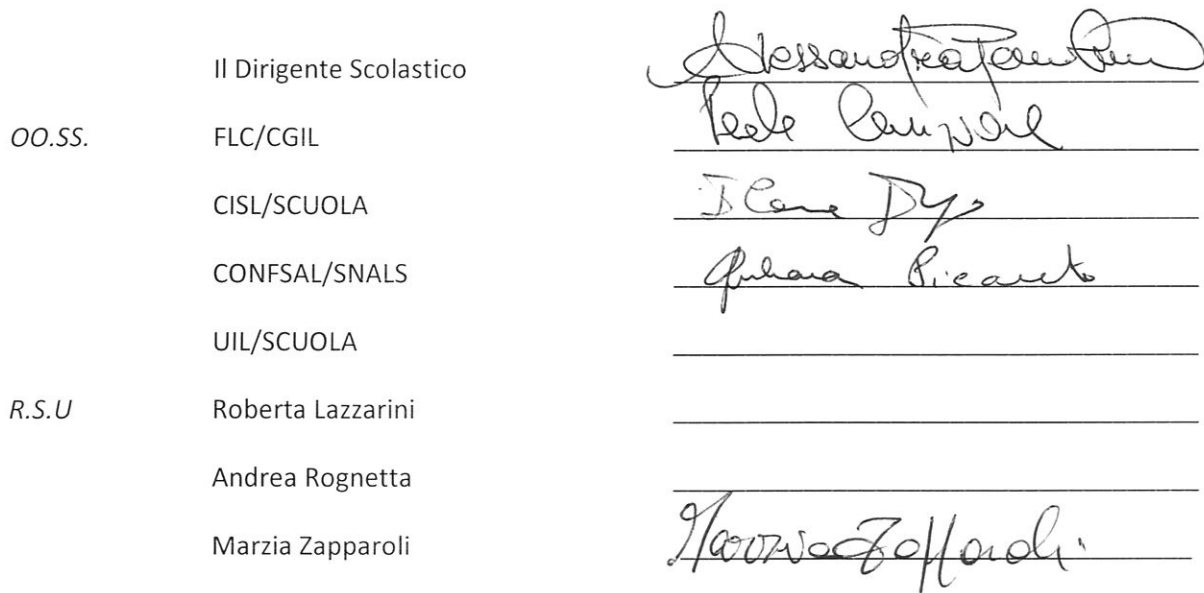 Il Dirigente Scolastico Alessandra
OO.SS. FLC/CGIL
CISL/SCUOLA
CONFSAL/SNALS
UIL/SCUOLA
R.S.U Roberta Lazzarini
Andrea Rognetta
Marzia Zapparoli Marzia Zapparoli